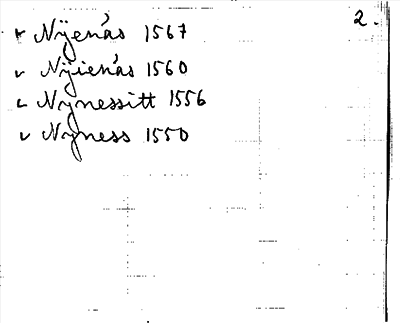 2.
v Nÿenás 1567
v Nÿienás 1560
v Nynessitt 1556
v Nyness 1550